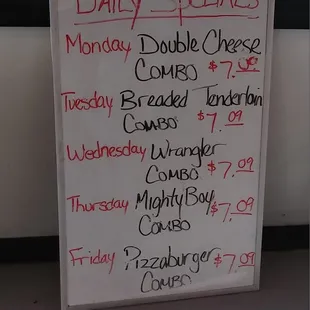 DAILY SPECIALS
Monday Double Cheese
COMBO $7.09
Tuesday Breaded Tenderloin
COMBO $7.09
Wednesday Wrangler
COMBO $7.09
Thursday Mighty Boy
COMBO $7.09
Friday Pizzaburger $7.09
COMBO